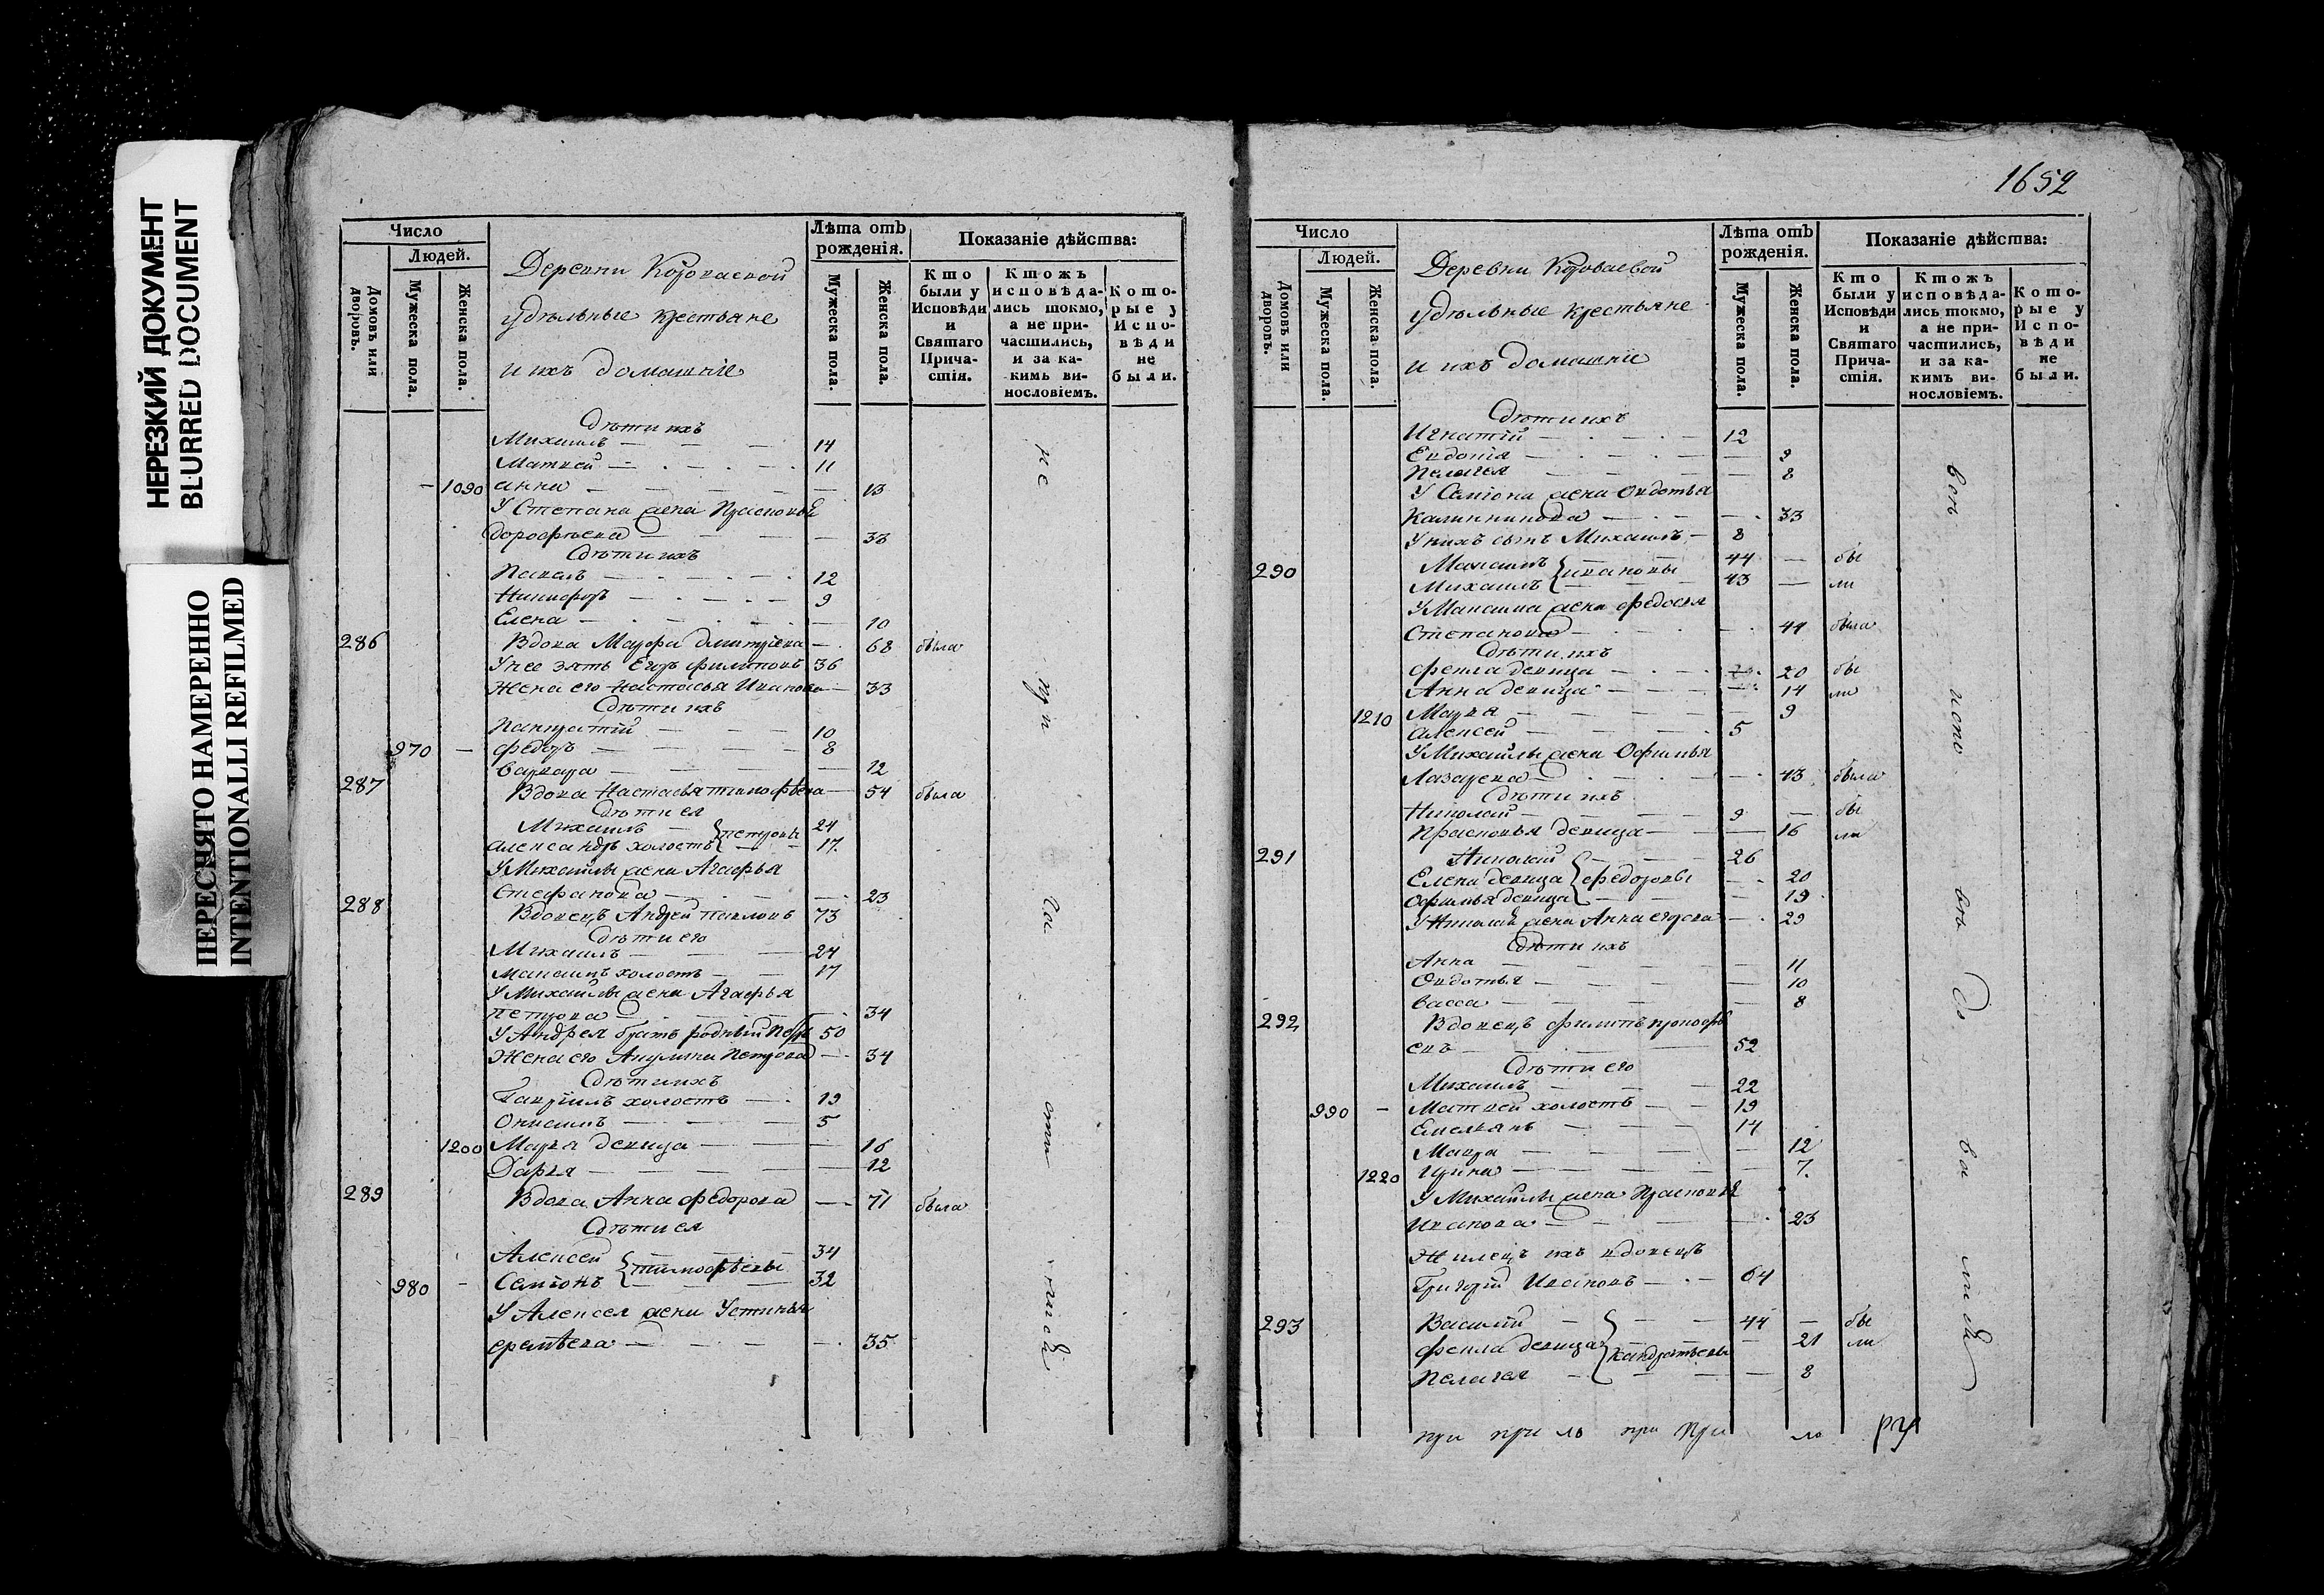 НЕРЕЗКИЙ ДОКУМЕНТ
BLURRED DOCUMENT
ПЕРЕСНЯТО НАМЕРЕННО
INTENTIONALLI REFILMED
Число
Людей.
Домовъ или дворовъ.
Мужеска пола.
Женска пола.
Деревни Короваевой
удѣльные крестьяне
и ихъ домашніе
Лѣта отъ рожденія.
Мужеска пола.
Женска пола.
Показаніе дѣйства:
Кто были у Исповѣди и Святаго Прича-стія.
Ктожъ исповѣда-лись токмо, а не при-частились, и за ка-кимъ ви-нословіемъ.
Кото-рые у Испо-вѣди не были.
дѣти ихъ
Михаилъ 14
Матвей 11
1090 анна 13
У Степана жена Прасковья
дорофѣева 33
дѣти ихъ
Павелъ 12
Никифоръ 9
Елена 10
286 Вдова Марфа дмитріева 68 была
У нее зять Егоръ филиповъ 36
Жена его Настасья Иванова 33
дѣти ихъ
Панкратій 10
970 федоръ 8
варвара 12
287 Вдова Настасья тимофѣева 54 была
дѣти ея
Михаилъ 24
александръ холостъ петровы 17
У Михаилы жена Агафья
Стефанова 23
288 Вдовецъ Андрей павловъ 73
дѣти его
Михаилъ 24
Максимъ холостъ 17
У Михаилы жена Агафья
петрова 34
У Андрея братъ родный Петръ 50
Жена его Акулина Петрова 34
дѣти ихъ
Гавріилъ холостъ 19
Онисимъ 5
1200 Марья девица 16
Дарья 12
289 Вдова Анна федорова 71 была
дѣти ея
Алексей 34
980 Семіонъ тимофѣевы 32
У Алексея жена Устинья
еремѣева 35
не при ча сти лись
1652
Число
Людей.
Домовъ или дворовъ.
Мужеска пола.
Женска пола.
Деревни Короваевой
удѣльные крестьяне
и ихъ домашніе
Лѣта отъ рожденія.
Мужеска пола.
Женска пола.
Показаніе дѣйства:
Кто были у Исповѣди и Святаго Прича-стія.
Ктожъ исповѣда-лись токмо, а не при-частились, и за ка-кимъ ви-нословіемъ.
Кото-рые у Испо-вѣди не были.
дѣти ихъ
Игнатій 12
Евдокія 9
Пелагея 8
У Семіона жена Овдотья
Калинникова 33
У нихъ сынъ Михаилъ 8
290 Максимъ 44 бы
Михаилъ ивановы 43 ли
У Максима жена федосья
Степанова 44 была
дѣти ихъ
фекла девица 20 бы
Анна девица 14 ли
1210 Марья 9
алексей 5
У Михаилы жена Офимья
Лазарева 43 была
дѣти ихъ
Николай 9 бы
Прасковья девица 16 ли
291 Николай 26
Елена девица федоровы 20
Офимья девица 19
У Николая жена Анна егорова 29
дѣти ихъ
Анна 11
Овдотья 10
васса 8
292 Вдовецъ филипъ прокофь
евъ 52
дѣти его
Михаилъ 22
990 Матвей холостъ 19
Емельянъ 14
Мавра 12
1220 Ирина 7
У Михаилы жена Прасковья
Иванова 23
Жилецъ ихъ вдовецъ
Григорій Ивановъ 64
293 Василій 44 бы
фекла девица кандратьевы 21 ли
Пелагея 8
при при ло при при ло